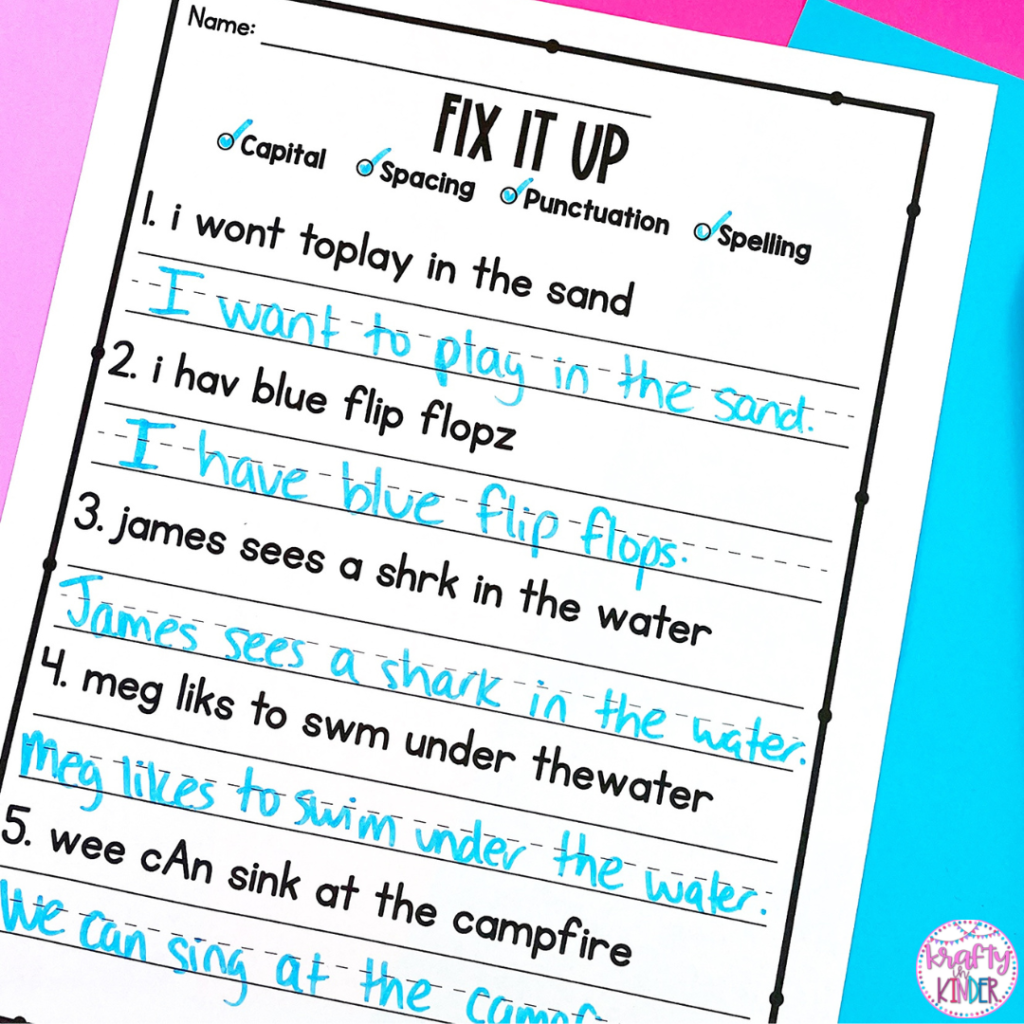 Name:
FIX IT UP
Capital Spacing Punctuation Spelling
1. i wont toplay in the sand
I want to play in the sand.
2. i hav blue flip flopz
I have blue flip flops.
3. james sees a shrk in the water
James sees a shark in the water.
4. meg liks to swm under thewater
Meg likes to swim under the water.
5. wee cAn sink at the campfire
We can sing at the
krafty
in
KINDER